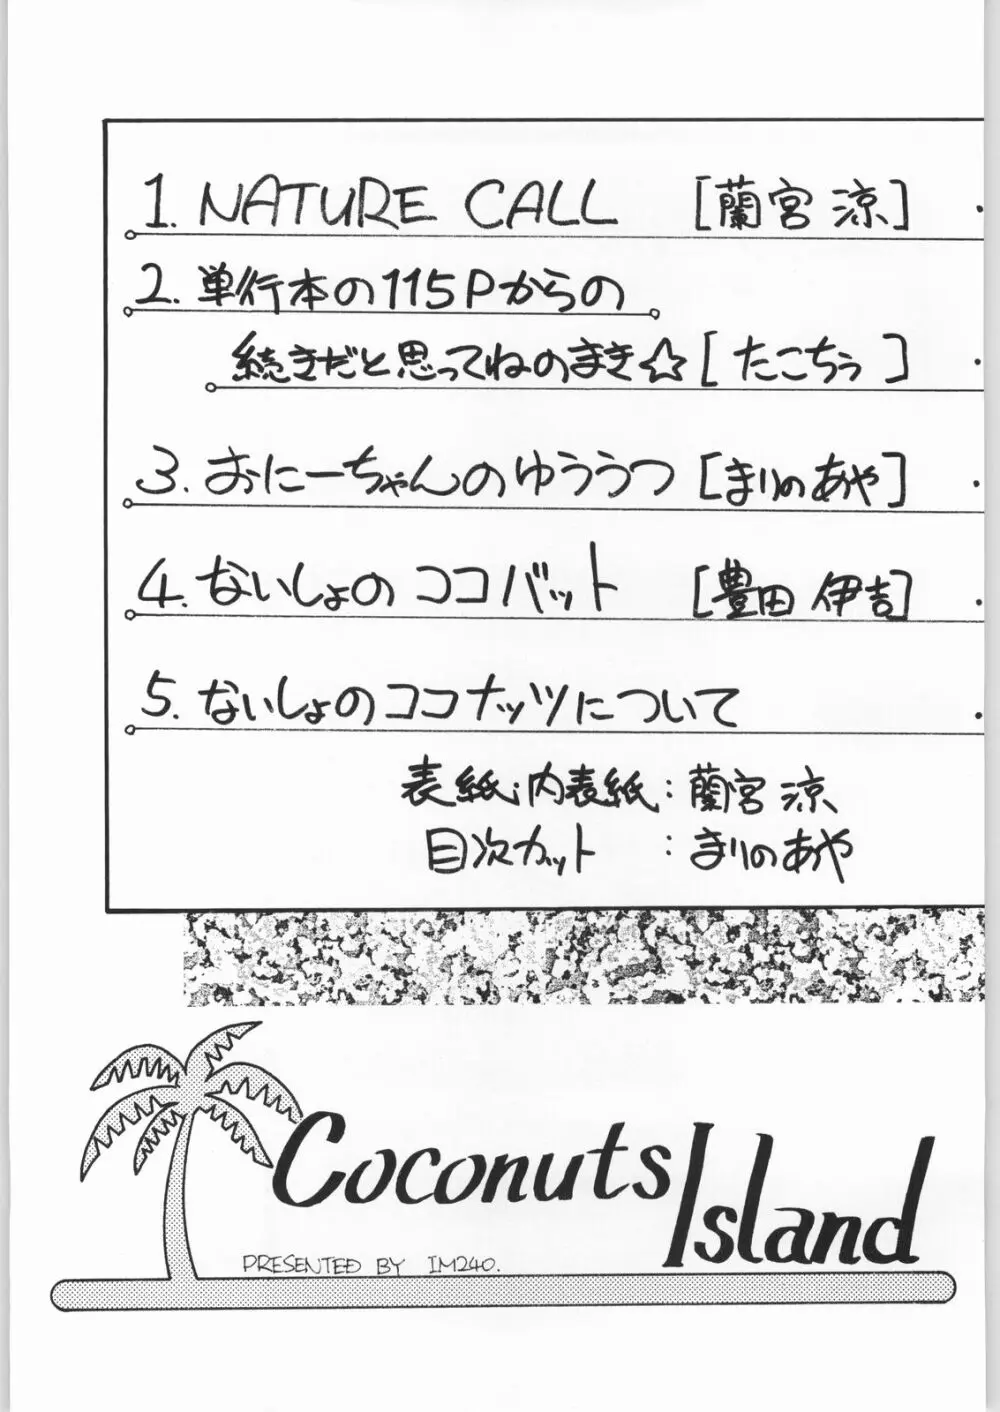 1. NATURE CALL [蘭宮 涼] ・
2. 単行本の115Pからの
続きだと思ってねのまき☆ [たこちぅ] ・
3. おにーちゃんのゆううつ [まりのあや] ・
4. ないしょのココバット [豊田 伊吉] ・
5. ないしょのココナッツについて ・
表紙・内表紙：蘭宮 涼
目次カット ：まりのあや
Coconuts Island
PRESENTED BY IM240.